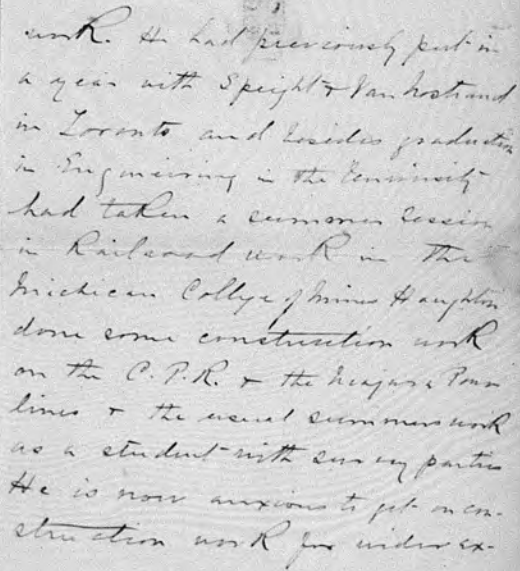 work. He had previously put in
a year with Speight & Van Nostrand
in Toronto and besides graduation
in Engineering in the University
had taken a summer session
in Railroad work in the
Michican College of Mines Haughton
done some construction work
on the C. P. R. & the Niagara Power
lines & the usual summers work
as a student with survey parties
He is now anxious to get on con-
struction work for wider ex-